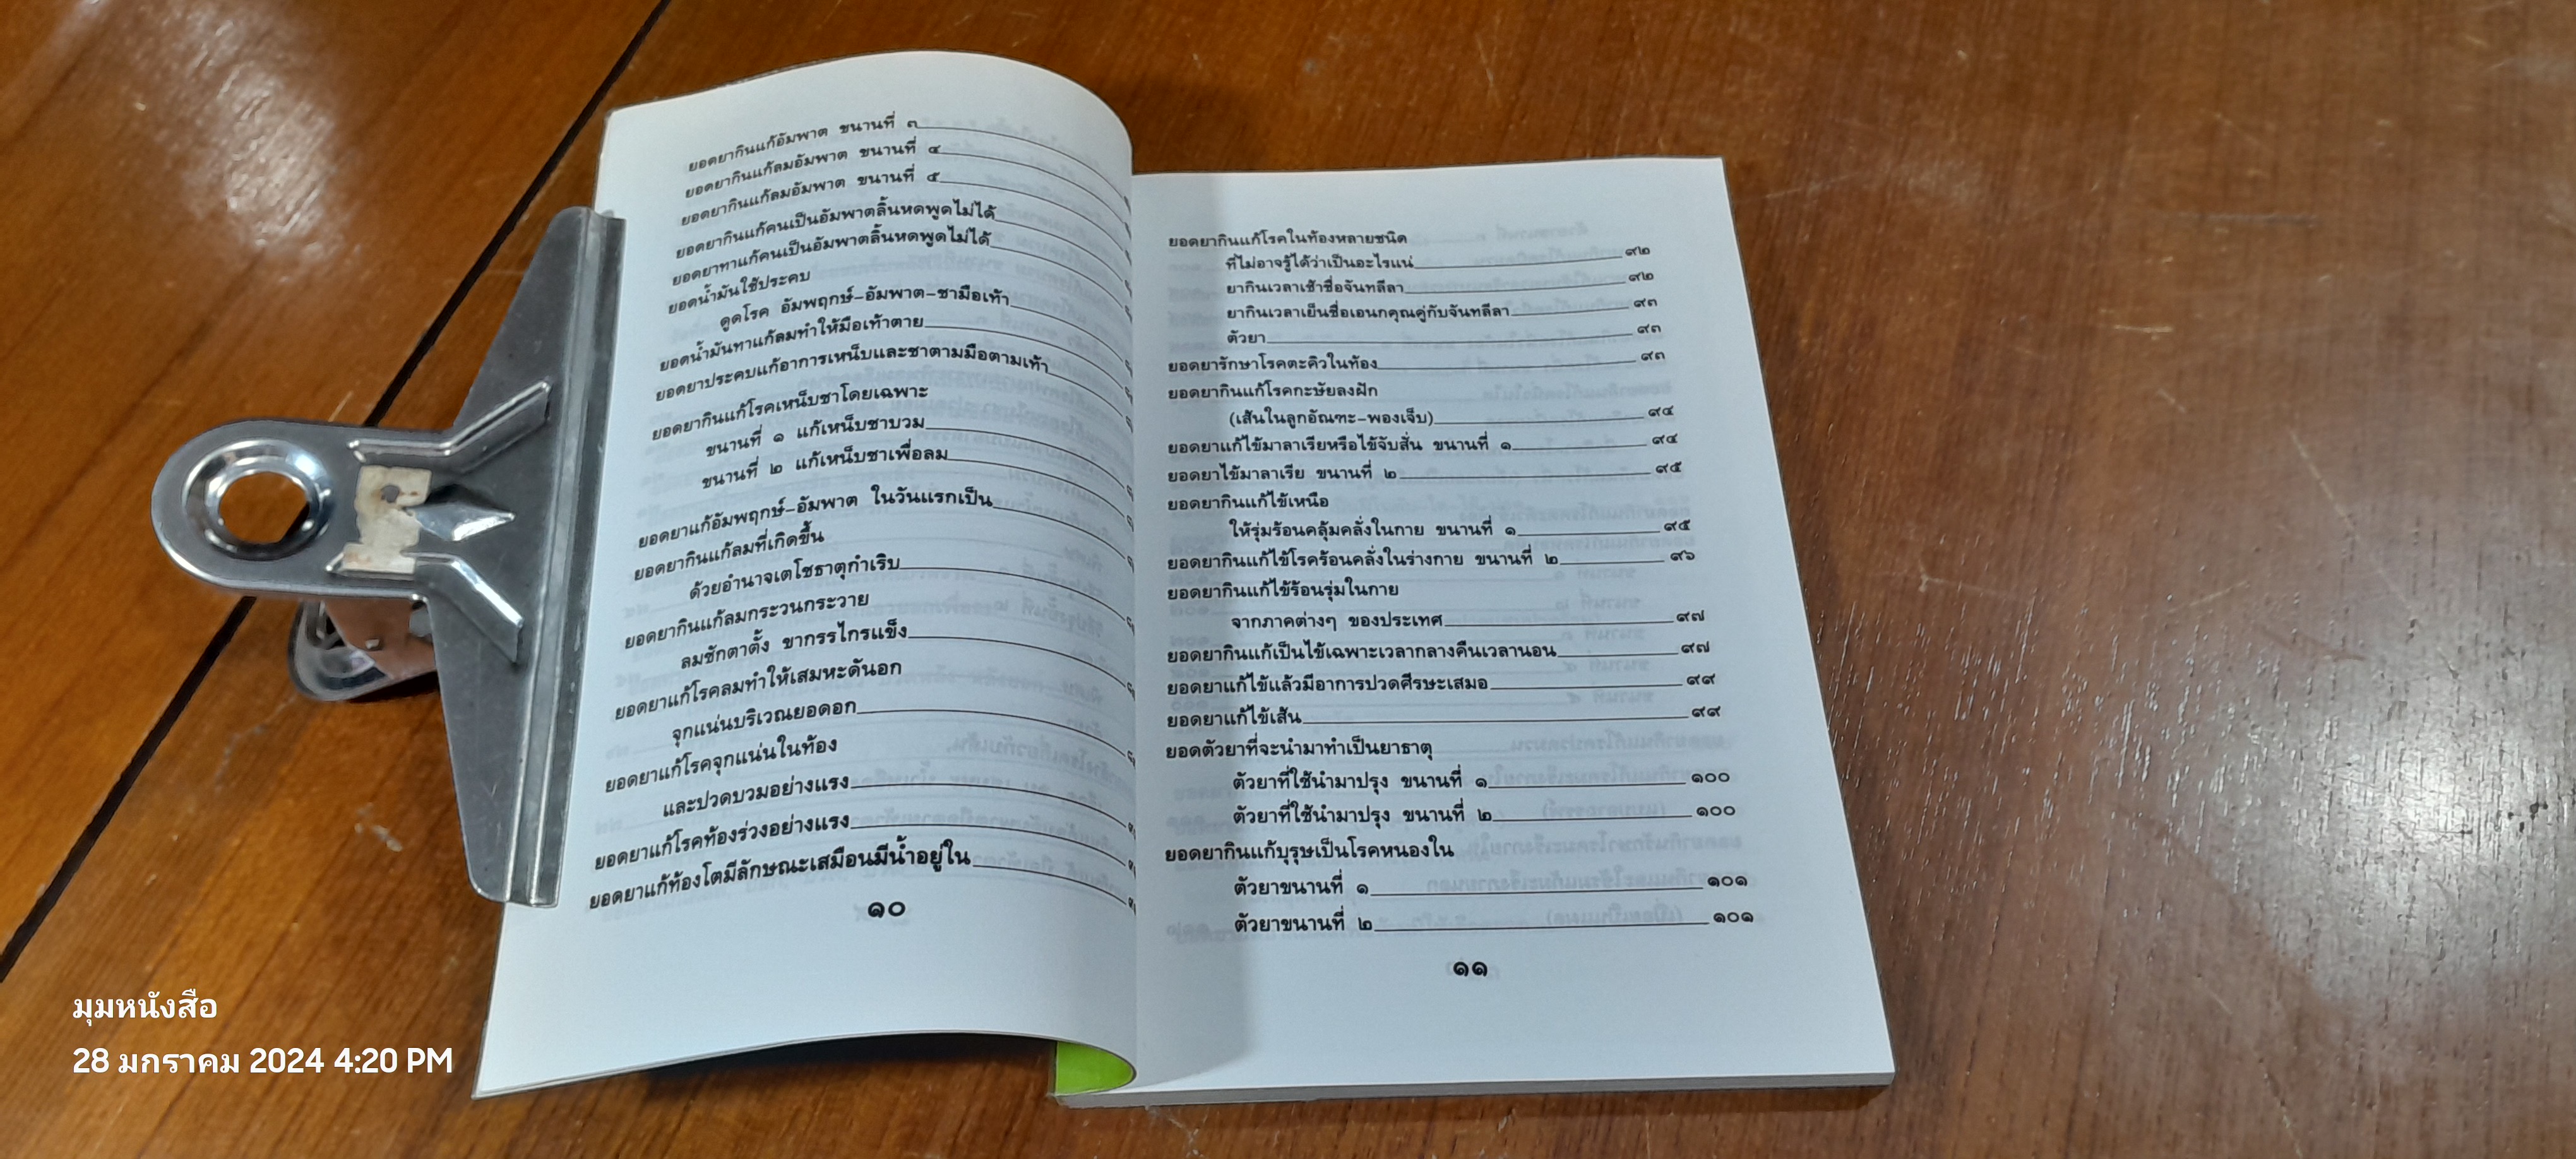 ยอดยากินแก้อัมพาต ขนานที่ ๓
ยอดยากินแก้ลมอัมพาต ขนานที่ ๔
ยอดยากินแก้ลมอัมพาต ขนานที่ ๕
ยอดยากินแก้คนเป็นอัมพาตลิ้นหดพูดไม่ได้
ยอดยาทาแก้คนเป็นอัมพาตลิ้นหดพูดไม่ได้
ยอดน้ำมันใช้ประคบ
ดูดโรค อัมพฤกษ์-อัมพาต-ชามือเท้า
ยอดน้ำมันทาแก้ลมทำให้มือเท้าตาย
ยอดยาประคบแก้อาการเหน็บและชาตามมือตามเท้า
ยอดยากินแก้โรคเหน็บชาโดยเฉพาะ
ขนานที่ ๑ แก้เหน็บชาบวม
ขนานที่ ๒ แก้เหน็บชาเพื่อลม
ยอดยาแก้อัมพฤกษ์-อัมพาต ในวันแรกเป็น
ยอดยากินแก้ลมที่เกิดขึ้น
ด้วยอำนาจเตโชธาตุกำเริบ
ยอดยากินแก้ลมกระวนกระวาย
ลมชักตาตั้ง ขากรรไกรแข็ง
ยอดยาแก้โรคลมทำให้เสมหะดันอก
จุกแน่นบริเวณยอดอก
ยอดยาแก้โรคจุกแน่นในท้อง
และปวดบวมอย่างแรง
ยอดยาแก้โรคท้องร่วงอย่างแรง
ยอดยาแก้ท้องโตมีลักษณะเสมือนมีน้ำอยู่ใน
๑๐
ยอดยากินแก้โรคในท้องหลายชนิด
ที่ไม่อาจรู้ได้ว่าเป็นอะไรแน่ ๙๒
ยากินเวลาเช้าชื่อจันทลีลา ๙๒
ยากินเวลาเย็นชื่อเอนกคุณคู่กับจันทลีลา ๙๓
ตัวยา ๙๓
ยอดยารักษาโรคตะคิวในท้อง ๙๓
ยอดยากินแก้โรคกะษัยลงฝัก
(เส้นในลูกอัณฑะ-พองเจ็บ) ๙๔
ยอดยาแก้ไข้มาลาเรียหรือไข้จับสั่น ขนานที่ ๑ ๙๔
ยอดยาไข้มาลาเรีย ขนานที่ ๒ ๙๕
ยอดยากินแก้ไข้เหนือ
ให้รุ่มร้อนคลุ้มคลั่งในกาย ขนานที่ ๑ ๙๕
ยอดยากินแก้ไข้โรคร้อนคลั่งในร่างกาย ขนานที่ ๒ ๙๖
ยอดยากินแก้ไข้ร้อนรุ่มในกาย
จากภาคต่างๆ ของประเทศ ๙๗
ยอดยากินแก้เป็นไข้เฉพาะเวลากลางคืนเวลานอน ๙๗
ยอดยาแก้ไข้แล้วมีอาการปวดศีรษะเสมอ ๙๙
ยอดยาแก้ไข้เส้น ๙๙
ยอดตัวยาที่จะนำมาทำเป็นยาธาตุ
ตัวยาที่ใช้นำมาปรุง ขนานที่ ๑ ๑๐๐
ตัวยาที่ใช้นำมาปรุง ขนานที่ ๒ ๑๐๐
ยอดยากินแก้บุรุษเป็นโรคหนองใน
ตัวยาขนานที่ ๑ ๑๐๑
ตัวยาขนานที่ ๒ ๑๐๑
๑๑
มุมหนังสือ
28 มกราคม 2024 4:20 PM